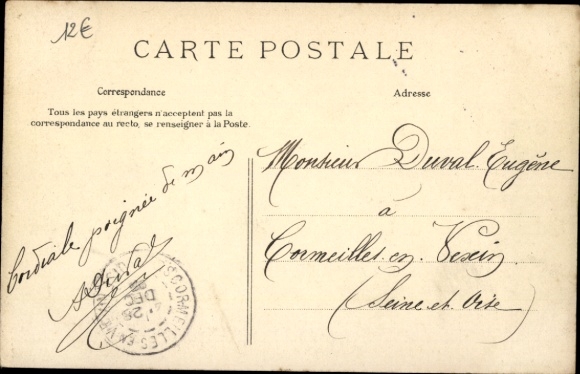 12€
CARTE POSTALE
Correspondance
Adresse
Tous les pays étrangers n'acceptent pas la
correspondance au recto, se renseigner à la Poste.
Cordiale poignée de main
A Duval
Monsieur Duval Eugène
à
Cormeilles en Vexin
(Seine et Oise)
CORMEILLES EN VEXIN
28
DEC